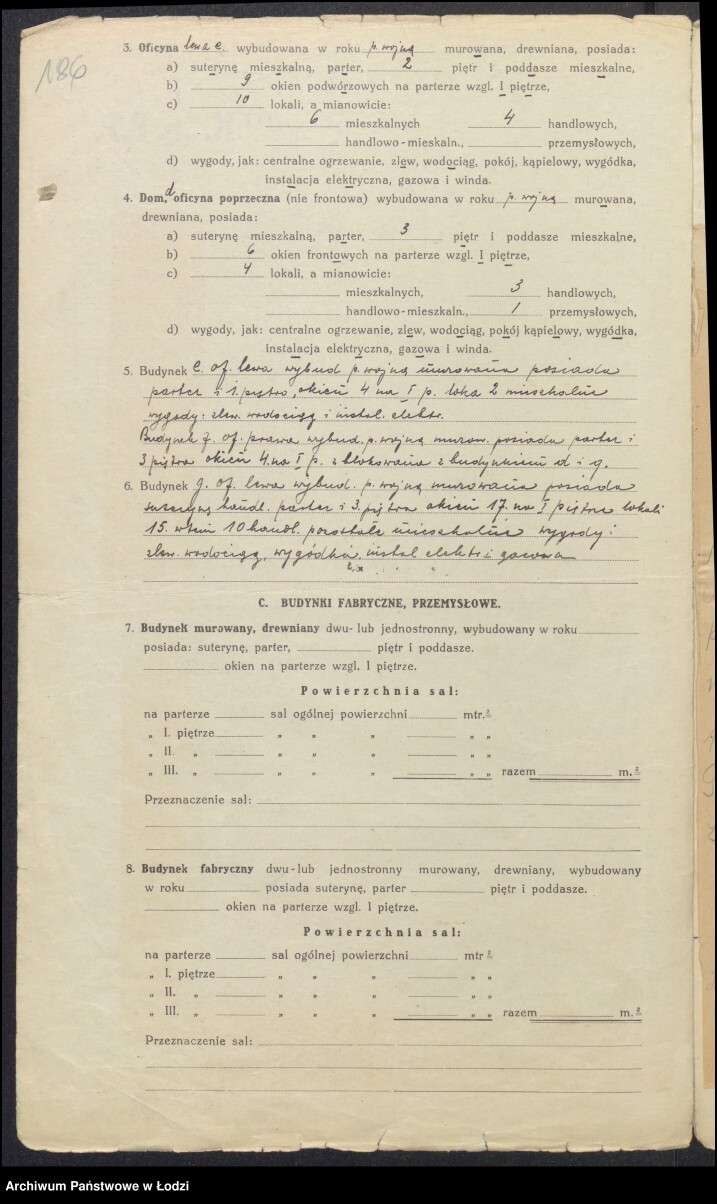 186
3. Oficyna lewa c. wybudowana w roku p. wojną murowana, drewniana, posiada:
a) suterynę mieszkalną, parter, 2 piętr i poddasze mieszkalne,
b) 9 okien podwórzowych na parterze wzgl. I piętrze,
c) 10 lokali, a mianowicie:
6 mieszkalnych 4 handlowych,
handlowo-mieskaln., przemysłowych,
d) wygody, jak: centralne ogrzewanie, zlew, wodociąg, pokój, kąpielowy, wygódka,
instalacja elektryczna, gazowa i winda.
4. Dom, d oficyna poprzeczna (nie frontowa) wybudowana w roku p. wojną murowana,
drewniana, posiada:
a) suterynę mieszkalną, parter, 3 piętr i poddasze mieszkalne,
b) 6 okien frontowych na parterze wzgl. I piętrze,
c) 4 lokali, a mianowicie:
mieszkalnych, 3 handlowych,
handlowo-mieszkaln., 1 przemysłowych,
d) wygody, jak: centralne ogrzewanie, zlew, wodociąg, pokój kąpielowy, wygódka,
instalacja elektryczna, gazowa i winda.
5. Budynek e. of. lewa wybud p. wojną murowana posiada
parter i 1. piętro, okien 4 na I p. loka 2 mieszkalne
wygody: zlew. wodociąg i instal. elektr.
Budynek f. of. prawa wybud. p. wojną murow. posiada parter i
3 piętra okien 4. na I p. zblokowana z budynkiem d i g.
6. Budynek g. of. lewa wybud. p. wojną murowana posiada
suteryną handl. parter i 3. piętra okien 17. na I piętrze lokali
15. w tem 10 handl. pozostałe mieszkalne wygody:
zlew. wodociąg, wygódka. instal elektr i gazowa
C. BUDYNKI FABRYCZNE, PRZEMYSŁOWE.
7. Budynek murowany, drewniany dwu- lub jednostronny, wybudowany w roku
posiada: suterynę, parter, piętr i poddasze.
okien na parterze wzgl. I piętrze.
Powierzchnia sal:
na parterze sal ogólnej powierzchni mtr.²
„ I. piętrze „ „ „ „ „
„ II. „ „ „ „ „ „
„ III. „ „ „ „ „ „ razem m.²
Przeznaczenie sal:
8. Budynek fabryczny dwu-lub jednostronny murowany, drewniany, wybudowany
w roku posiada suterynę, parter piętr i poddasze.
okien na parterze wzgl. I piętrze.
Powierzchnia sal:
na parterze sal ogólnej powierzchni mtr²
„ I. piętrze „ „ „ „ „
„ II. „ „ „ „ „ „
„ III. „ „ „ „ „ „ razem m.²
Przeznaczenie sal:
Archiwum Państwowe w Łodzi